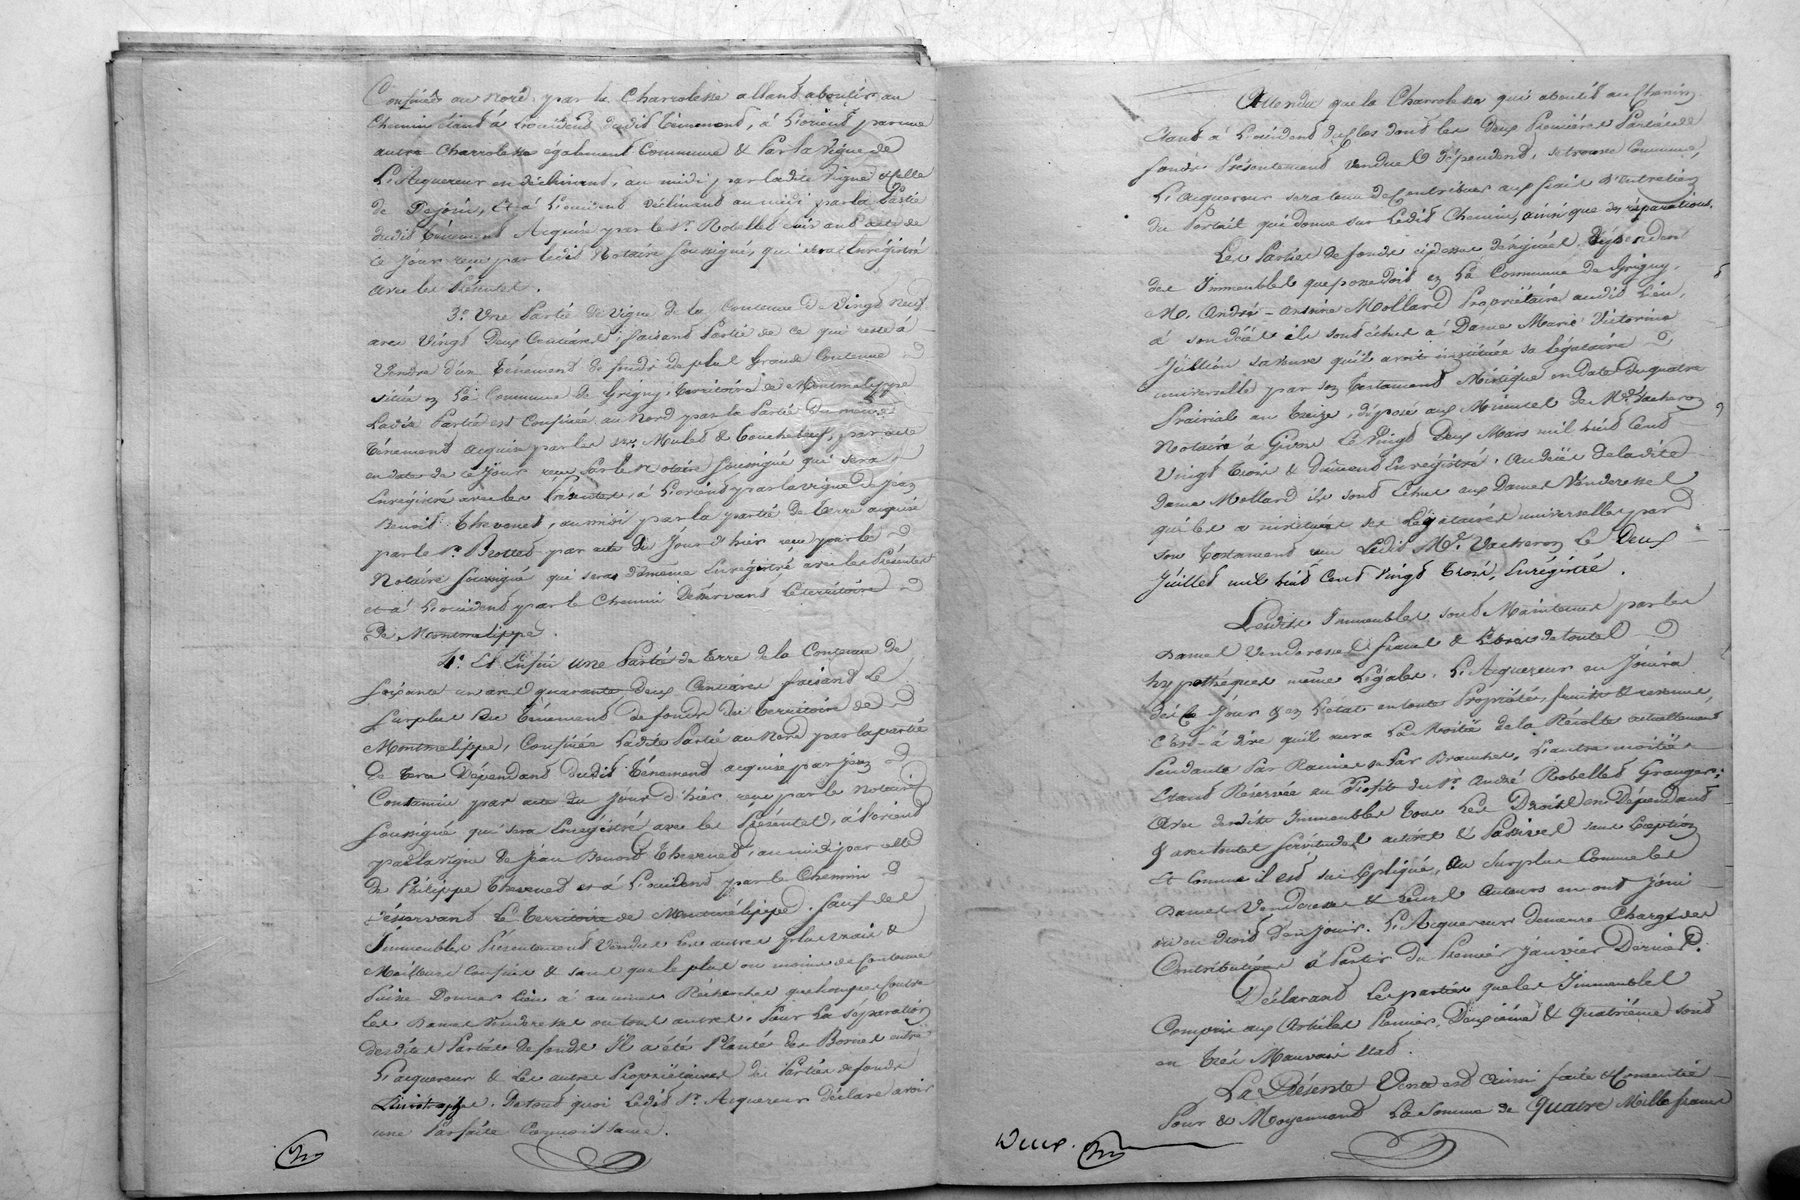 Confinés au Nord par la Charrolesse allant aboutir au
Chemin étant à l'occident dudit Ténement, à l'orient par une
autre Charrolesse également Commune & Par la vigne de
L'Acquereur en déclinant, au midi par ladite Vigne & celle
de Pejoin, Et à l'occident déclinant au midi par la Partie
dudit Ténement Acquise par le Sr. Robelled suivant acte de
ce Jour reçu par ledit Notaire Soussigné, qui sera Enrégistré
avec les Présentes.
3°. Une Partie de Vigne de la Contenue de Vingt Neuf
ares Vingt Deux Centiares, faisant Partie de ce qui reste à
Vendre d'un Ténement de fonds de plus Grande Contenue
située en la Commune de Grigny, Territoire de Montmelippe
Ladite Partie est Confinée au Nord par la Partie du même
Ténement acquise par les Srs. Mulet & Couchebeuf, par acte
en date de ce Jour reçu Par le Notaire Soussigné qui sera
Enrégistré avec les Présentes, à l'orient par la vigne de Jean
Benoit Thevenet, au midi par la partie de Terre acquise
par le Sr. Brotted par acte du Jour d'hier reçu par le
Notaire Soussigné qui sera de même Enrégistré avec les Présentes
et à l'occident par le Chemin Desservant le territoire
de Montmelippe.
4°. Et Enfin une Partie de Terre de la Contenue de
Soixante un ares quarante Deux Centiares faisant le
Surplus du Ténement de fonds du Territoire de
Montmelippe, Confinée Ladite Partie au Nord par la partie
de Terre Dépendant dudit Ténement acquise par Jean
Contamin par acte du Jour d'hier reçu par le Notaire
Soussigné qui sera Enrégistré avec les Présentes, à l'orient
par la vigne de Jean Benoit Thevenet, au midi par celle
de Philippe Thevenet et à l'occident par le Chemin
desservant le Territoire de Montmélippe. Sauf des
Immeubles Présentement Vendus les autres plus vrais &
Meilleurs Confins & sans que le plus ou moins de Contenue
Puisse Donner lieu à aucunes Récherches quelconques contre
les Dames Venderesses ou tout autres. Pour la Séparation
desdites Parties de fonds Il a été Planté des Bornes entre
l'acquereur & les autres Propriétaires des Parties de fonds
Limitrophes. De tout quoi Ledit Sr. Acquereur déclare avoir
une Parfaite Connoissance.
Attendu que la Charrolesse qui aboutit au Chemin
étant à l'occident du Clos dont les deux Premières Parties de
fonds Présentement Vendues Dépendent, se trouve Commune,
L'Acquereur sera tenu de Contribuer aux frais d'Entretien
du Portail qui donne sur Ledit Chemin, ainsi que des réparations.
Les Parties de fonds cidessus désignées Dépendent
des Immeubles que possedoit en la Commune de Grigny,
M. André-Antoine Mollard Propriétaire audit Lieu,
à son Décès ils sont échus à Dame Marie Victorine
Jullien sa Veuve qu'il avoit instituée sa légataire
universelle par son Testament Mistique en date du quatre
Prairial an treize, déposé aux Minutes de Me. Vacheron
Notaire à Givors le Vingt Deux Mars mil huit Cent
Vingt Trois & Dûment Enrégistré. Au décès de ladite
Dame Mollard ils sont Echus aux Dames Venderesses
qu'elle a instituées ses Légataires universelles par
son Testament reçu Ledit Me. Vacheron le Deux
Juillet mil huit Cent Vingt Trois, Enrégistré.
Lesdits Immeubles sont Maintenus par les
Dames Venderesses francs & Libres de toutes
hypothéques même Légales. L'Acquereur en Jouira
dès ce Jour & en l'état en toute Propriété, fruits & revenus,
C'est-à-dire qu'il aura la Moitié de la Récolte actuellement
Pendante Par Racines & Par Branches, L'autre moitié
Etant Réservée au Profit du Sr. André Robelled Granger;
Avec desdits Immeubles tous les Droits en Dépendant
& avec toutes Servitudes actives & Passives sans Exception
Et Comme il est sus Expliqué, Au Surplus Comme les
Dames Venderesses & leurs Auteurs en ont Joui
ou eu droit d'en jouir. L'Acquereur demeure Chargé des
Contributions à Partir du Premier Janvier Dernier.
Déclarant les parties que les Immeubles
Compris aux Articles Premier, Deuxième & quatrième sont
en Très Mauvais état.
La Présente Vente est Ainsi faite & Consentie
Pour & Moyennant La Somme de Quatre Mille francs
Deux.